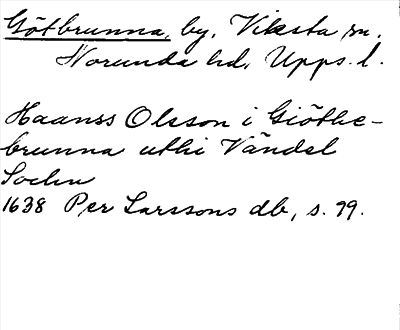 Götbrunna, by, Viksta sn.
Norunda hd, Upps. l.
Haanss Olsson i Giöthe-
brunna uthi Vändel
Sochn
1638 Per Larssons db, s. 79.